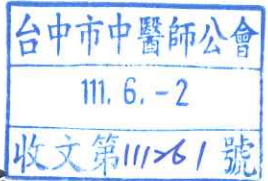 台中市中醫師公會
111. 6. -2
收文第111261號